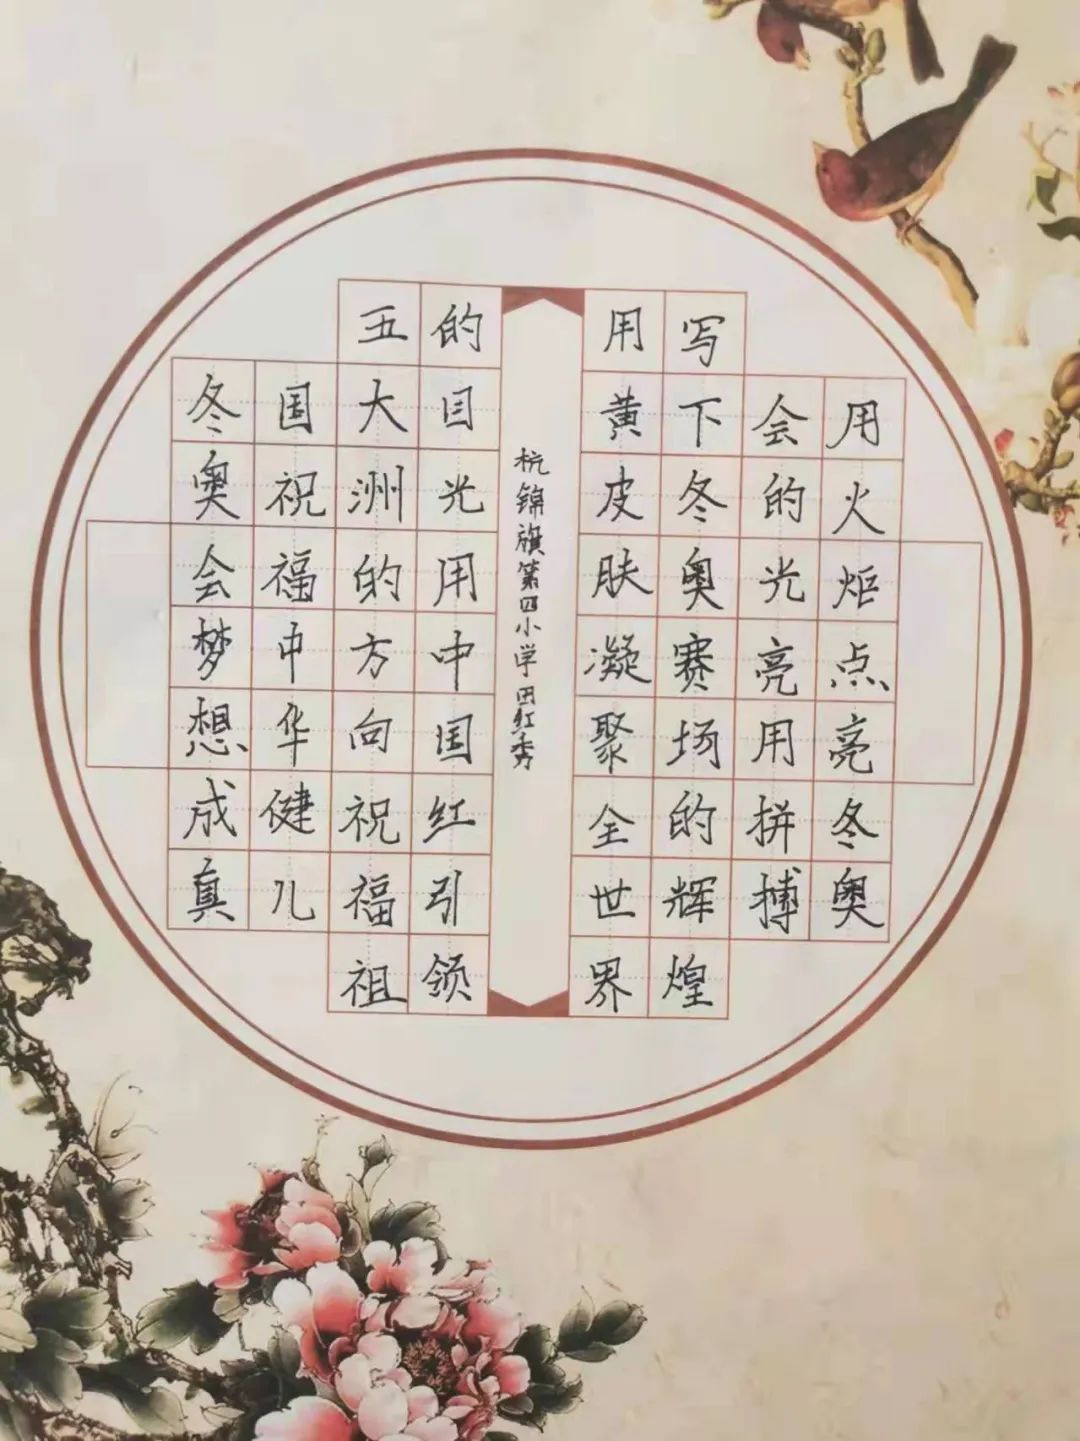 用火炬点亮冬奥
会的光亮用拼搏
写下冬奥赛场的辉煌
用黄皮肤凝聚全世界
的目光用中国红引领
五大洲的方向祝福祖
国祝福中华健儿
冬奥会梦想成真
杭锦旗第四小学田红秀